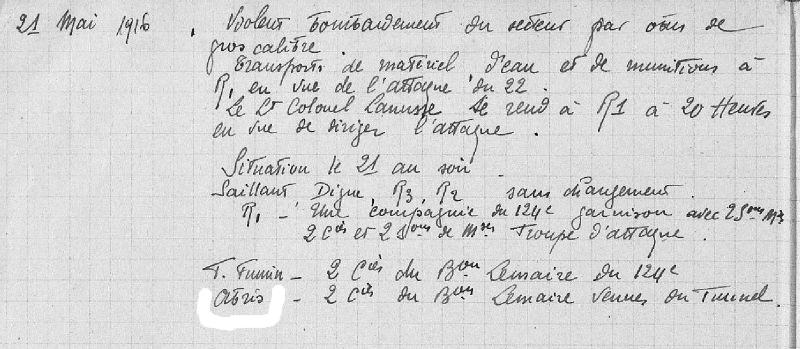 21 Mai 1916. Violent bombardement du secteur par obus de
gros calibre.
Transports de matériel d'eau et de munitions à
R1 en vue de l'attaque du 22.
Le Lt Colonel Lanusse se rend à R1 à 20 Heures
en vue de diriger l'attaque.
Situation le 21 au soir.
Saillant Digue, R3, R2 sans changement.
R1 - Une compagnie du 124e garnison avec 2 Sons Mses
2 Cies et 2 Sons de Mses Troupe d'attaque.
T. Fumin - 2 Cies du Bon Lemaire du 124e
Abris - 2 Cies du Bon Lemaire venues du Tunnel.